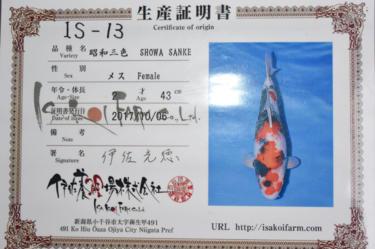 1S-13
生産証明書
Certificate of origin
品種
Variety
昭和三色 SHOWA SANKE
性別
Sex
メス Female
年令・体長
Age-Size
才 43 cm
Age
証明書発行日
Date of issue
2017/10/06
備考
Note
署名
Signature
伊佐光徳
Isa Koi Farm Co., Ltd.
新潟県小千谷市大字蘭生甲491
491 Ko Hiu Ouaza Ojiya City Niigata Pref
URL http://isakoifarm.com/